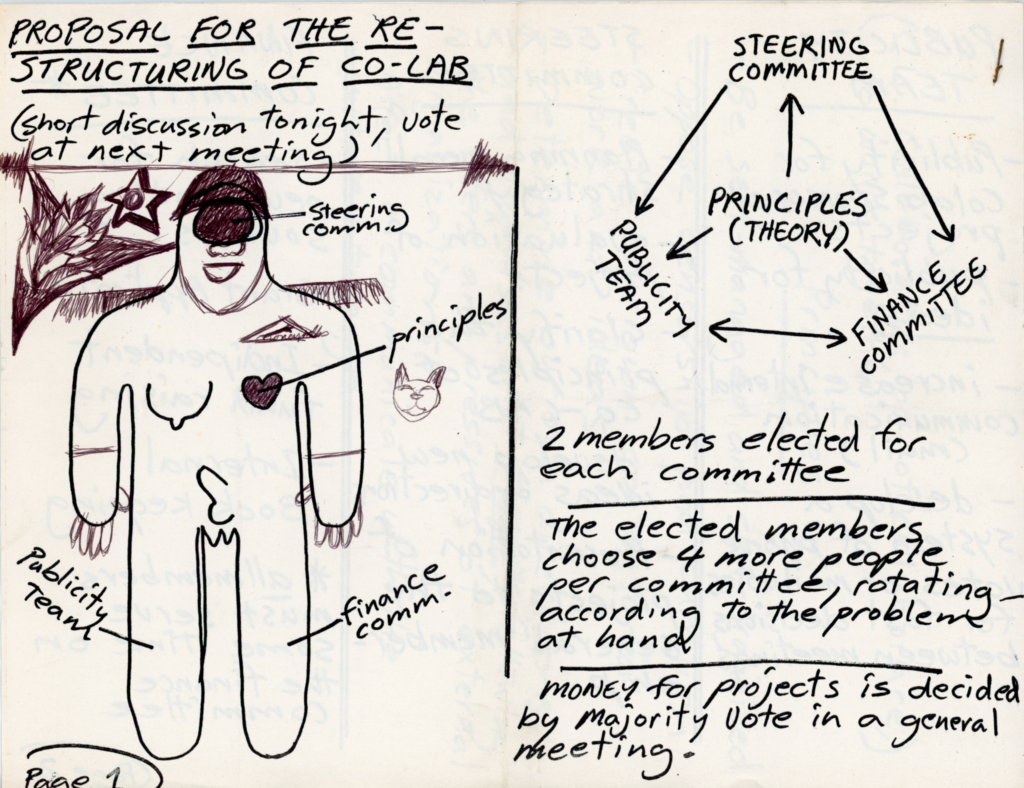 PROPOSAL FOR THE RE-
STRUCTURING OF CO-LAB
(short discussion tonight, vote
at next meeting)
steering
comm.
principles
Publicity
Team
finance
comm.
Page 1
STEERING
COMMITTEE
PRINCIPLES
(THEORY)
PUBLICITY
TEAM
FINANCE
COMMITTEE
2 members elected for
each committee
The elected members
choose 4 more people
per committee, rotating
according to the problem
at hand
MONEY for projects is decided
by majority vote in a general
meeting.